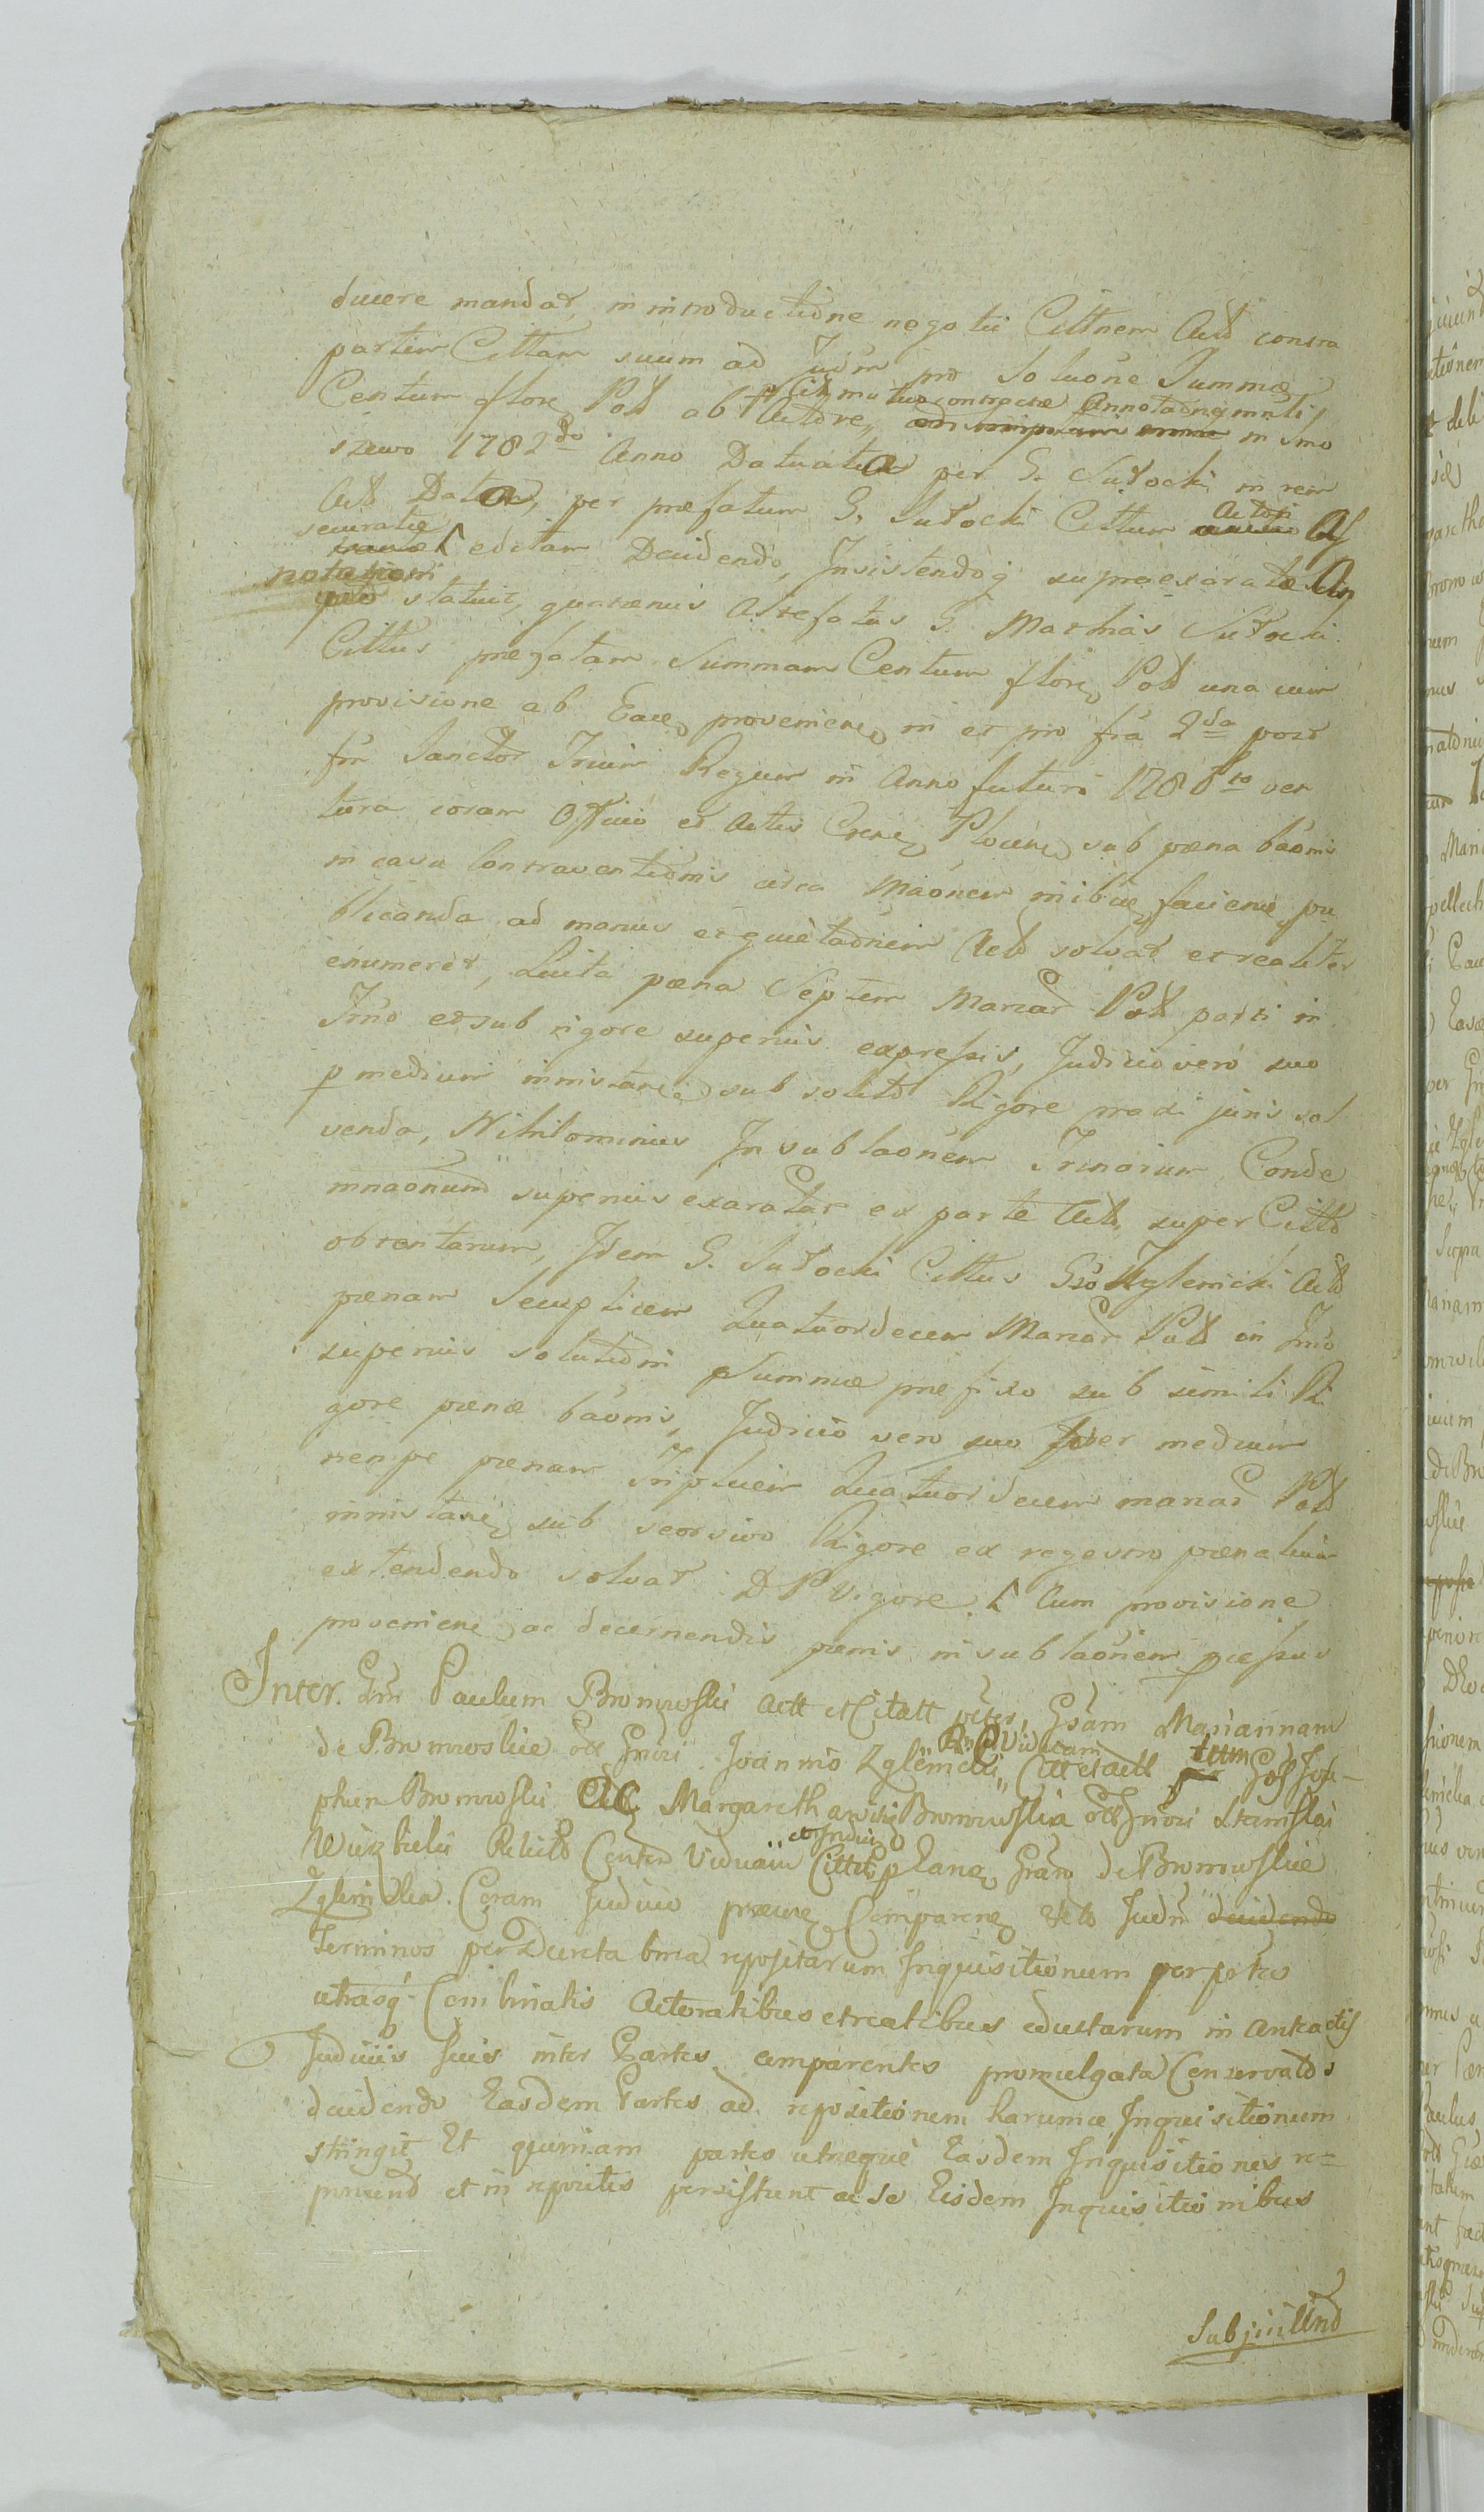 ducere mandat, in introductione negotii Cittnem Actt contra
partem Cittam suum ad Judm pro Soluone Summæ
Centum flore, Poll ab Actore,, Citt mutuo contractæ Annotaõne mnti in Smo
szewo 1782do Anno Datuatæ per G. Sutocki in rem
Actt Datæ, per præfatum G. Sutocki Cittum Actori As
securatæ editam Decidendo, Insistendoq supraexaratæ An
notationi statuit, quatenus Atrefatus G. Mathias Sutocki
Cittus prægatam Summam Centum flore, Poll una cum
provisione ab Eace, proveniene, in et pro fra 2da post
fm Sanctor Trium Regum in Anno futuro 178 ven
tura coram Officio et Actis Crene, Plocene, sub pæna baõnis
in casu Contraventiõnis circa Maõnem inibiq, faciene, pu
blicanda ad manus et quietaõnem Actt solvat et realiter
enumeret, Luita pæna Septem Marcar Poll parti in
Tmo et sub rigore superius expressis, Judicio vero suo
p medium ministane, sub solito Rigore practi juris sol
venda, Nihilominus In sublaõnem Trinarum Conde
mnaõnum superius exaratar ex parte Actt, super Citto
obtentarum, Idem G. Sutocki Cittus Gso Zglenicki Actt
pænam Sexuplicem Quatuordecem Marcar Poll in Tmo
superius solutioni Summæ præfixo sub simili Ri
gore pænæ baõnis, Judicio vero suo per medium
nempe pænam Triplicem Quatuordecem marcar Poll
ministane, sub seorsivo Rigore ex regestro pænalium
extendendo solvat D P Vigore. Cum provisione
proveniene, ac decernendis pænis in sublaõnem
Inter. Gm Paulum Bromirski Actt et Citatt peter, Gsam Mariannam
de Bromirskie oll Gnrsi Joannis Zglenicki,, Viduam Citt et actt tum Gos Jose-
phum Bromirski Ac Margaretham Bromirska oll Gnrsi Stanislai
Relictt Conten Viduam et Indui Citt plane, Gsam de Bromirskie
Zglenicka. Coram Judicio præsene, Comparene, Actt Judm
Terminos per Decreta bina repositarum Inquisitionum per ptes
utrasq Combinatis Actoratibus et reatibus eductarum in anteactis
Judiciis suis inter Partes comparentes promulgata Conservatos
decidendo Easdem Partes ad repositionem harumce Inquisitionum
stringit Et quoniam partes utreque Easdem Inquisitiones re-
ponund et in repositis persistunt ac se Eisdem Inquisitionibus
Subjiciund